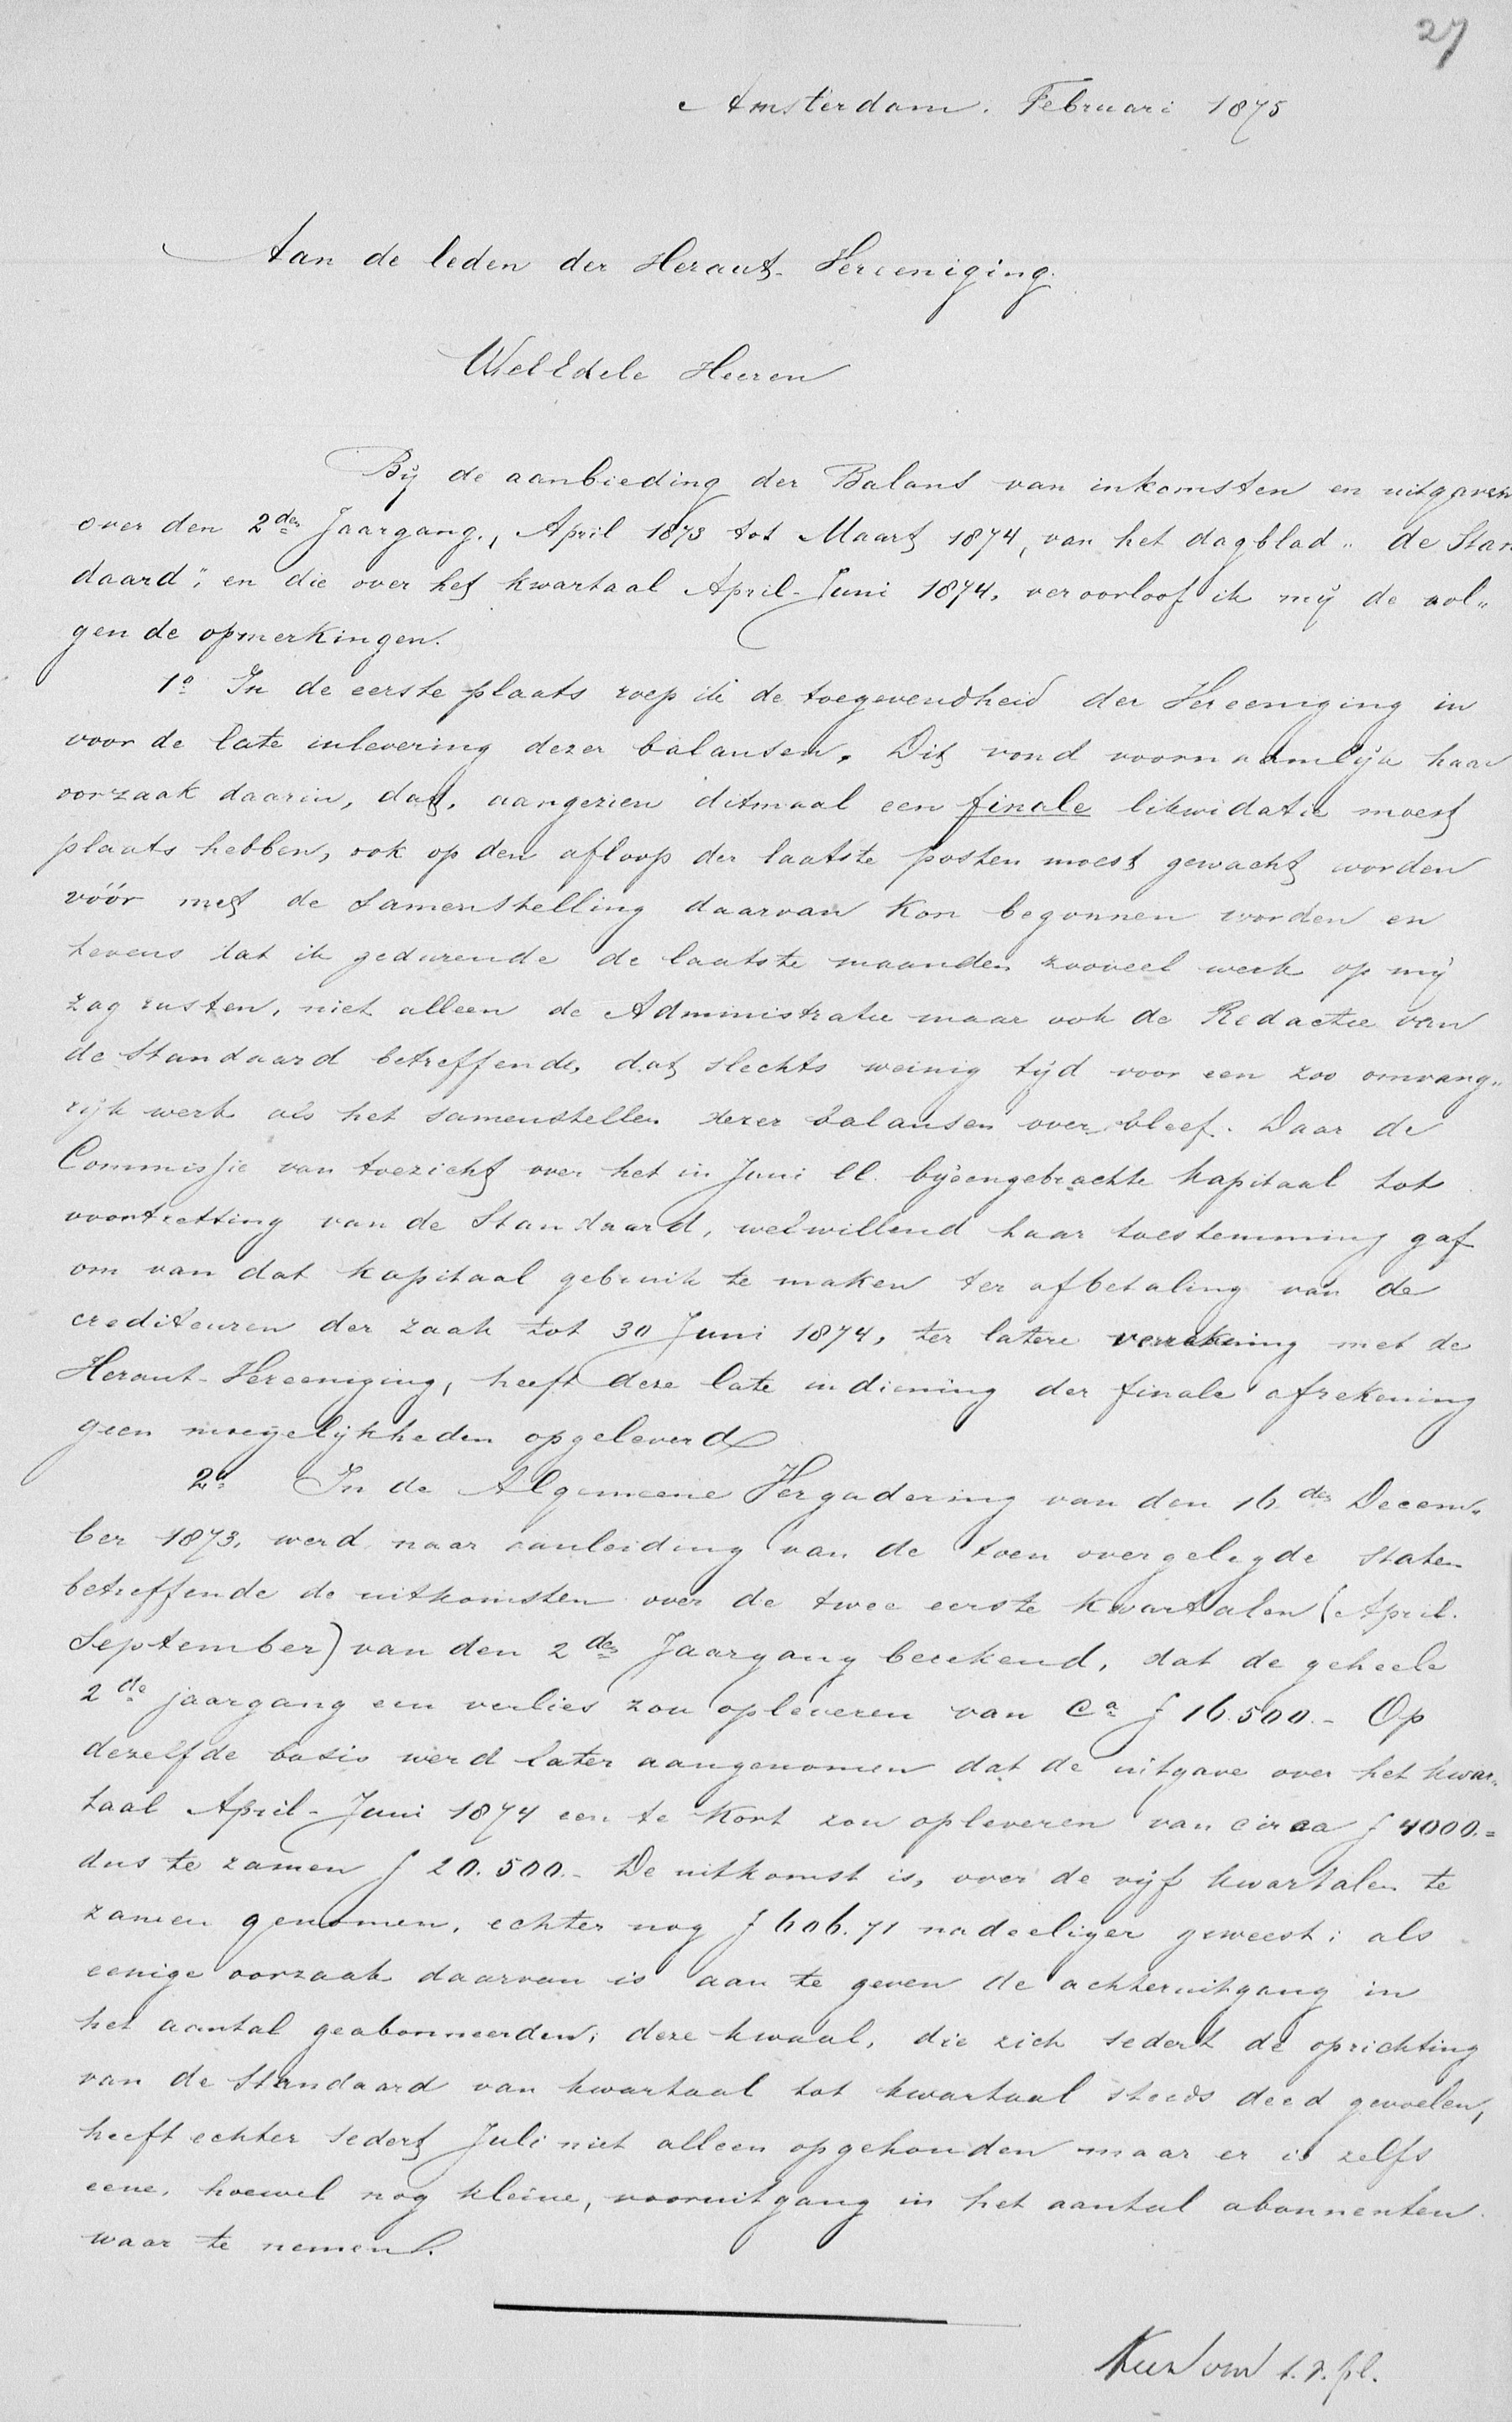 27
Amsterdam. Februari 1875
Aan de leden der Heraut-Vereeniging.
WelEdele Heeren
Bij de aanbieding der Balans van inkomsten en uitgaven
over den 2den Jaargang, April 1873 tot Maart 1874, van het dagblad „de Stan
daard", en die over het kwartaal April-Juni 1874, veroorloof ik mij de vol„
gende opmerkingen.
1o In de eerste plaats roep ik de toegevendheid der Vereeniging in
voor de late inlevering dezer balansen. Dit vond voornamelijk haar
oorzaak daarin, dat, aangezien ditmaal een finale likwidatie moest
plaats hebben, ook op den afloop der laatste posten moest gewacht worden
vóór met de samenstelling daarvan kon begonnen worden en
tevens dat ik gedurende de laatste maanden zooveel werk op mij
zag rusten, niet alleen de Administratie maar ook de Redactie van
de Standaard betreffende, dat slechts weinig tijd voor een zoo omvang„
rijk werk als het samenstellen dezer balansen over bleef. Daar de
Commissie van toezicht over het in Juni ll. bijeengebrachte kapitaal tot
voortzetting van de Standaard, welwillend haar toestemming gaf
om van dat kapitaal gebruik te maken ter afbetaling van de
crediteuren der zaak tot 30 Juni 1874, ter latere verrekening met de
Heraut-Vereeniging, heeft deze late indiening der finale afrekening
geen moeijelijkheden opgeleverd
2o In de Algemeene Vergadering van den 16den Decem„
ber 1873, werd naar aanleiding van de toen overgelegde staten
betreffende de uitkomsten over de twee eerste kwartalen (April.
September) van den 2den Jaargang berekend, dat de geheele
2de jaargang een verlies zou opleveren van Ca f 16.500.- Op
dezelfde basis werd later aangenomen dat de uitgave over het kwar„
taal April-Juni 1874 een te kort zou opleveren van circa f 4000.=
dus te zamen f 20.500.- De uitkomst is, over de vijf kwartalen te
zamen genomen, echter nog f 606.71 nadeeliger geweest; als
eenige oorzaak daarvan is aan te geven de achteruitgang in
het aantal geabonneerden; deze kwaal, die zich sedert de oprichting
van de Standaard van kwartaal tot kwartaal steeds deed gevoelen,
heeft echter sedert Juli niet alleen opgehouden maar er is zelfs
eene, hoewel nog kleine, vooruitgang in het aantal abonnenten
waar te nemen.